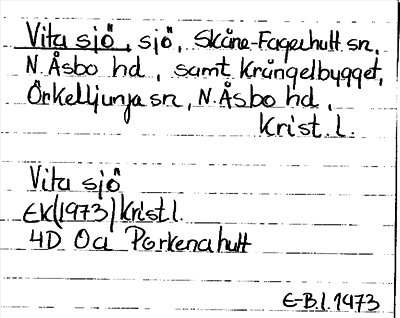 Vita sjö, sjö, Skåne-Fagerhult sn,
N. Åsbo hd, samt Krångelbygget,
Örkelljunga sn, N. Åsbo hd,
Krist. l.
Vita sjö
EK(1973) Krist l.
4D Oa Porkenahult
E-B.l. 1973